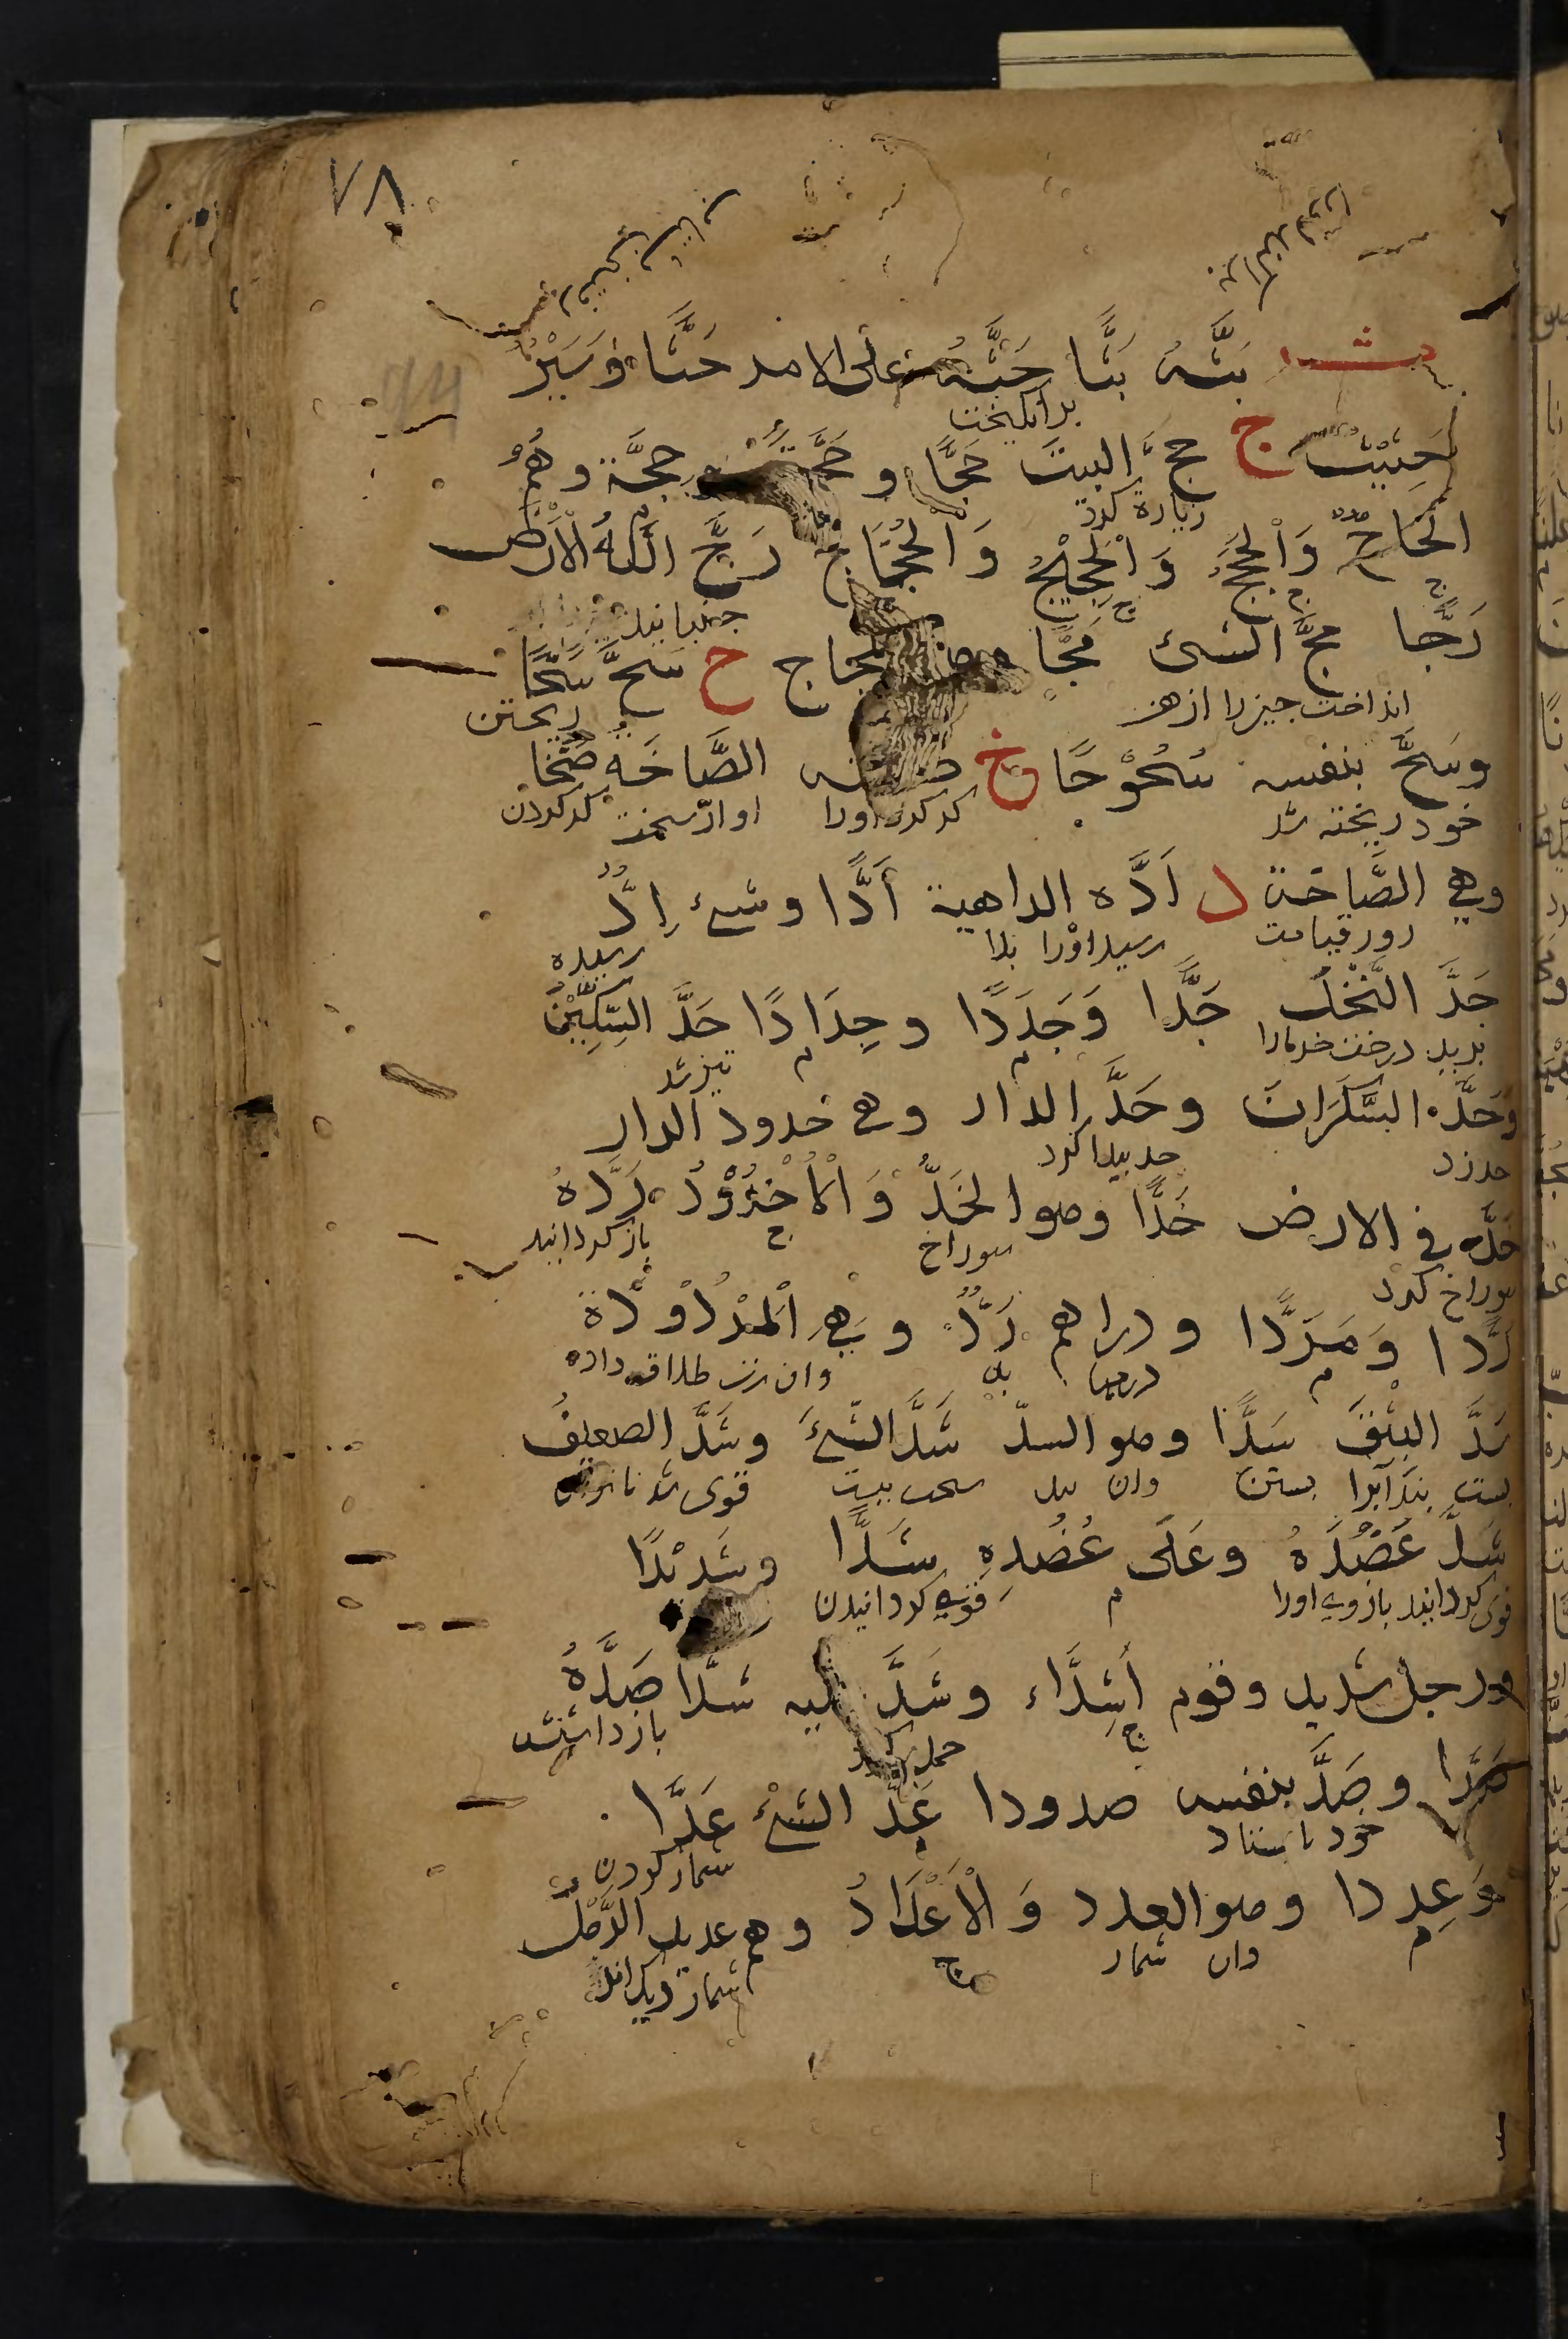 ٧٨
ث بَثَّهُ بَثًّا حَثَّهُ على الامر حَثًّا وَسَيْرٌ
برانكيخت
حَثِيْثٌ ج حجَّ البيتَ حَجًّا و حَجَّةً وحِجَّة وهُمُ
زيارة كرد
الحَاجُّ وَالْحُجُّ وَالْحَجِيْجُ وَالْحُجَّاج رَجَّ اللّهُ الْاَرْضَ
جنبانيد
رَجًّا مجَّ الشئ مَجًّا وهو المجاج ح سَحَّ سَحًّا
انداخت جيز را از دهن ريختن
وسَحَّ بنفسه سُحُوْحًا خ صخته الصَّاخَّه صَخًّا
خود ريخته شد كر كرد اورا اواز سخت كر كردن
وهي الصَّاخة د اَدَّه الداهية اَدًّا وشئ اِدٌّ
روز قيامت رسيد اورا بلا رسيده
جَدَّ النَّخْلَ جَدًّا وَجَدَدًا وجِدَادًا حَدَّ السِّكِّيْنُ
بريد درخت خرما را تيز شد
وَحَدَّه السَّكَرَانَ وحَدَّ الدار وهي حدود الدار
حد زد حد بيدا كرد
خَدَّه في الارض خَدًّا وهو الخَدُّ وَالْاُخْدُوْدُ رَدَّهُ
سوراخ كرد سوراخ باز كردانيد
رَدًّا وَمَرَدًّا ودراهم رَدٌّ وهِيَ الْمَرْدُوْدَة
وان زن طلاق داده
سَدَّ البثْقَ سَدًّا وهو السدّ شَدَّ الشَّئَ وشَدَّ الضعيفُ
بست بند آبرا بستن وان سخت ببست قوى شد
شَدَّ عَضُدَهُ وعَلَى عَضُدِهِ شَدًّا وشَدِيْدًا
قوى كردانيد بازوي اورا قوي كردانيدن
ورجل شديد وقوم اَشِدَّاء وشَدَّ عليه شَدًّا صَدَّهُ
حمله كرد باز داشتش
صَدًّا وصَدَّ بنفسه صدودا عَدَّ الشئَ عَدًّا
خود باستاد شمار كردن
وَعِددا وهو العدد وَالْاَعْدَادُ وهم عديد الرَّمْلِ
وان شمار